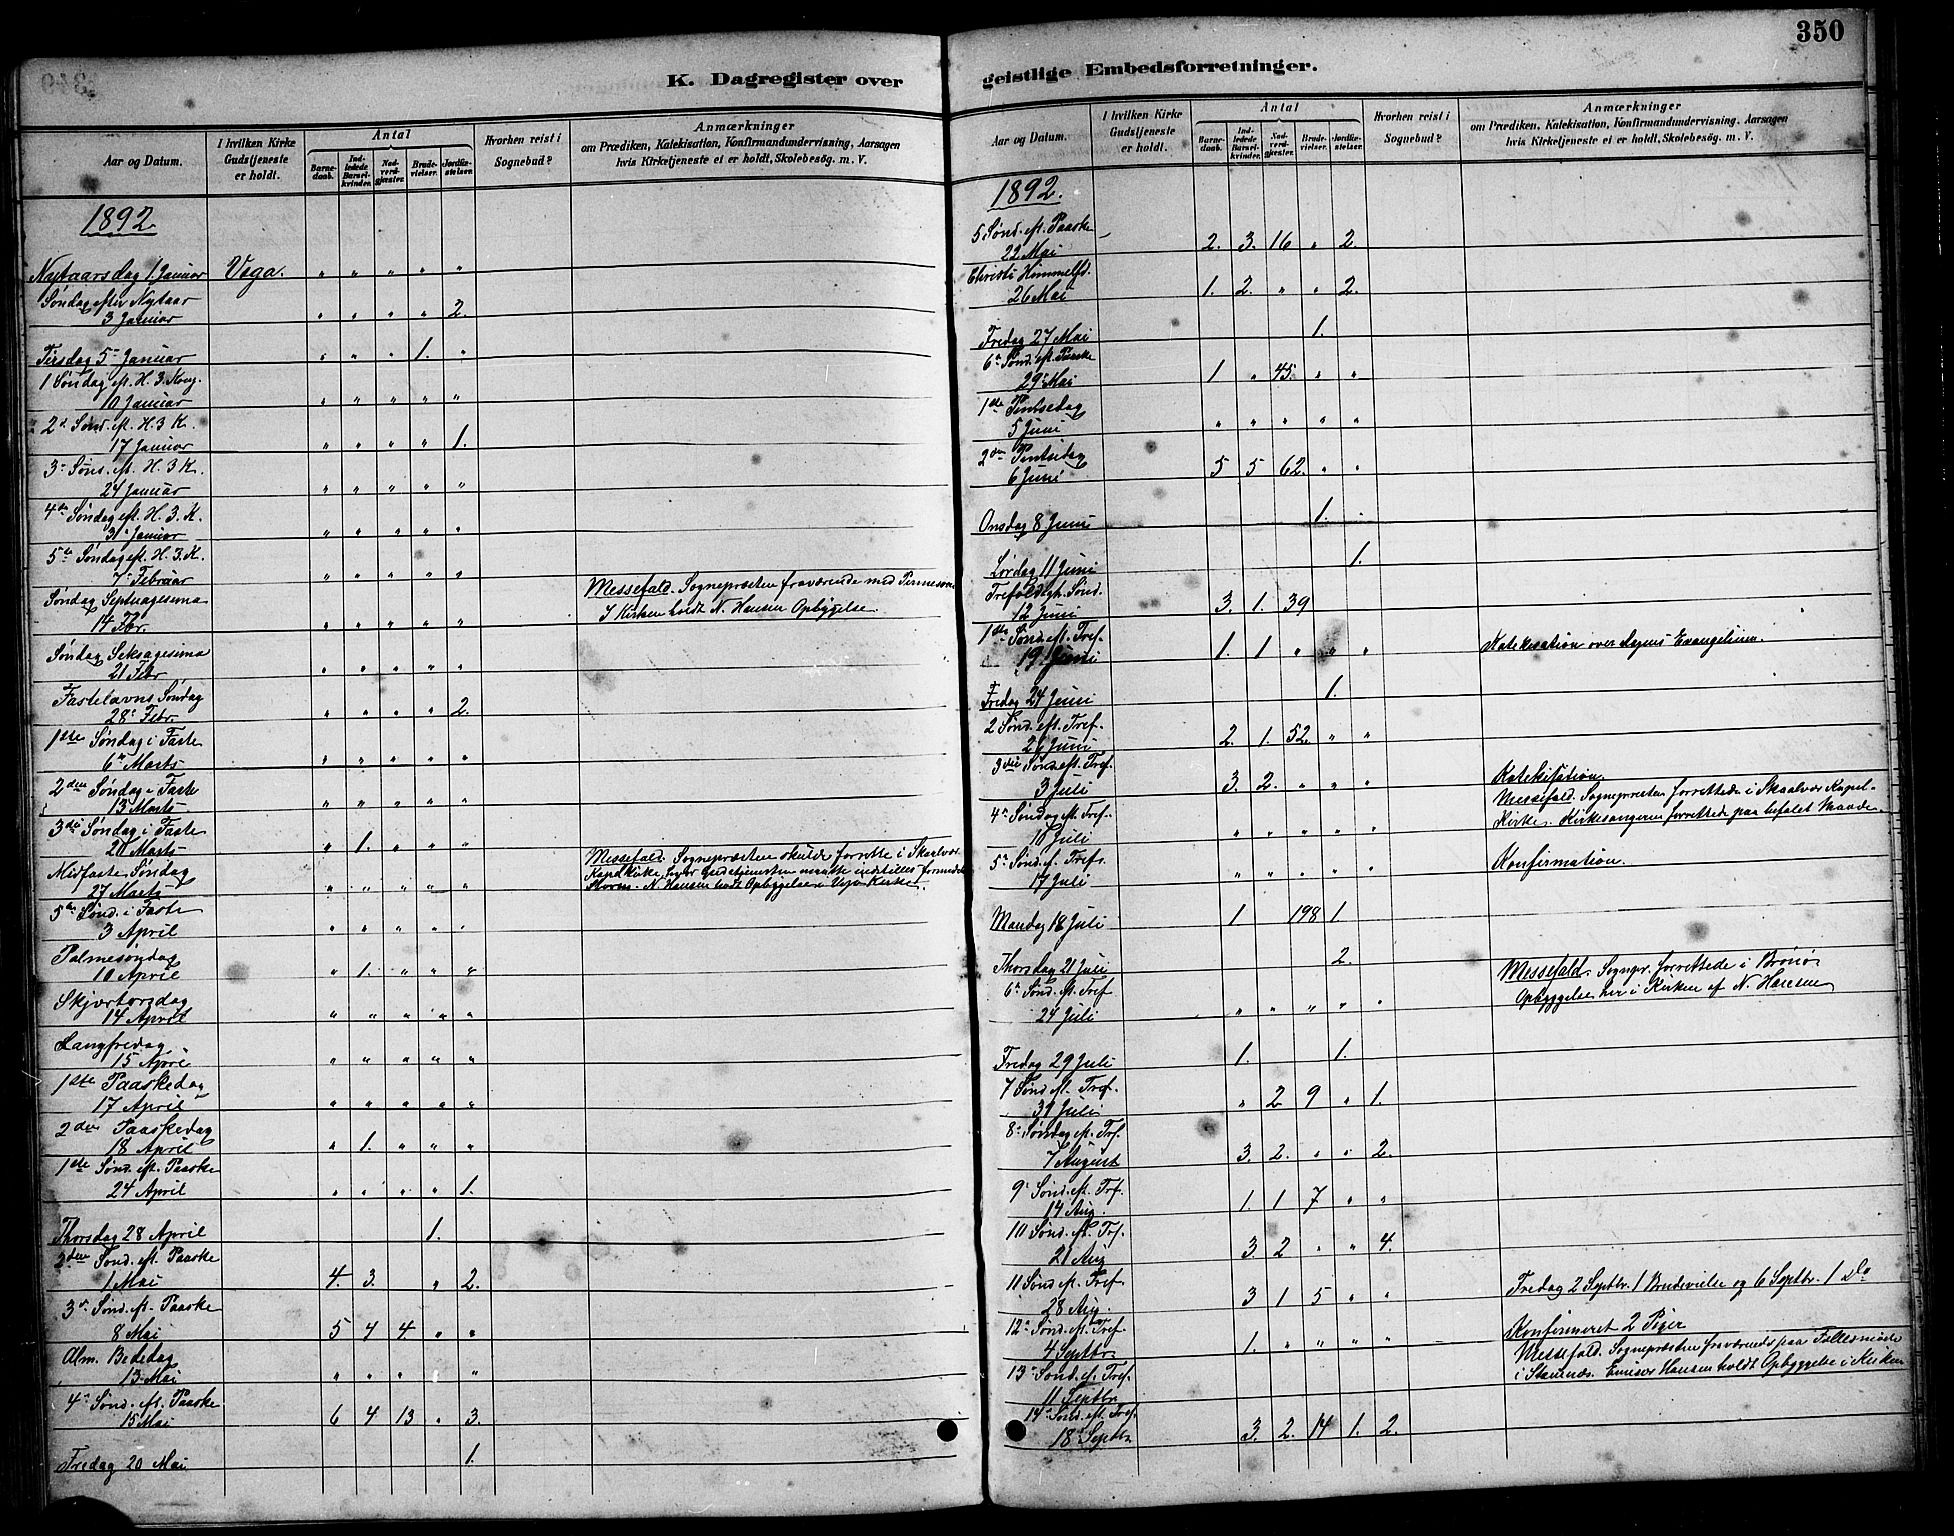 K. Dagregister over
Aar og Datum.
I hvilken Kirke Gudstjeneste er holdt.
Antal
Barnedaab.
Indledede Barselkvinder.
Nadverdgjæster.
Brudevielser.
Jordfæstelser.
Hvorhen reist i Sognebud?
Anmærkninger
om Prædiken, Katekisation, Konfirmandundervisning, Aarsagen
hvis Kirketjeneste ei er holdt, Skolebesøg m. V.
1892
Nytaarsdag 1 Januar Vega. " " " " "
Søndag efter Nytaar
3 Januar " " " " 2.
Tirsdag 5 Januar " " " 1. "
1 Søndag eft. H. 3. Kong.
10 Januar " " " " "
2 Sønd. eft. H. 3 K.
17 Januar " " " " 1.
3 Sønd. eft. H. 3 K.
24 Januar " " " " "
4de Søndag eft. H. 3. K.
31 Januar " " " " "
5te Søndag eft. H. 3. K.
7 Februar " " " " "
Søndag Septuagesima Messefald. Sognepræsten fraværende med
14 Fbr. " " " " " I Kirken holdt N. Hansen Opbyggelse
Søndag Seksagesima
21 Febr " " " " "
Fastelavns Søndag
28 Febr. " " " " 2.
1ste Søndag i Faste
6 Marts " " " " "
2den Søndag i Faste
13 Marts " " " " "
3die Søndag i Faste
20 Marts " 1. " " "
Midfaste Søndag Messefald. Sognepræsten skulde forrette i Skaalvær
27 Marts " " " " " Kapelkirke, Gudstjenesten maatte indstilles formedelst
Storm. N. Hansen holdt Opbyggelse i Vega Kirke.
5te Sønd. i Faste
3 April " " " " "
Palmesøndag
10 April " 1. " " "
Skjærtorsdag
14 April " " " " "
Langfredag
15 April " " " " "
1ste Paaskedag
17 April " " " " "
2den Paaskedag
18 April " 1. " " "
1ste Sønd. eft. Paaske
24 April " " " " 1.
Thorsdag 28 April 1.
2den Sønd. eft. Paaske
1 Mai 4. 3. " 2.
3 Sønd. eft. Paaske
8 Mai 5 4 4 " "
Alm. Bededag
13 Mai " " " "
4 Sønd. eft. Paaske
15 Mai 6 4 13 " 3.
Fredag 20 Mai 1.
350
geistlige Embedsforretninger.
Aar og Datum.
I hvilken Kirke Gudstjeneste er holdt.
Antal
Barnedaab.
Indledede Barselkvinder.
Nadverdgjæster.
Brudevielser.
Jordfæstelser.
Hvorhen reist i Sognebud?
Anmærkninger
om Prædiken, Katekisation, Konfirmandundervisning, Aarsagen
hvis Kirketjeneste ei er holdt, Skolebesøg m. V.
1892.
5 Sønd. eft. Paaske
22 Mai 2. 3. 16 " 2.
Christi Himmelfd.
26 Mai 1. 2. " " 2.
Fredag 27 Mai 1.
6 Sønd. eft. Paaske
29 Mai 1 " 45. " "
1ste Pintsedag
5 Juni " " " " "
2den Pintsedag
6 Juni 5 5 62. " "
Onsdag 8 Juni 1.
Lørdag 11 Juni 1.
Trefoldigh. Sønd.
12 Juni 3. 1. 39
1ste Sønd. eft. Tref.
19 Juni 1. 1 " " " Katekisation over Dagens Evangelium.
Fredag 24 Juni 1.
2 Sønd. eft. Tref.
26 Juni 2. 1. 52. " "
3die Sønd. eft. Tref. Katekisation
3 Juli 3. 2. " " "
4 Søndag eft. Tref. Messefald. Sognepræsten forrettede i Skaalvær Kapel-
10 Juli " " " " " kirke. Kirkesangeren forrettede paa befalet Maade
5 Sønd. ef. Tref. Konfirmation.
17 Juli " " " " "
Mandag 18 Juli 1 198 1
Thorsdag 21 Juli 2.
6 Sønd. eft. Tref Messefald. Sognepr. forrettede i Brønø.
24 Juli " " " " " Opbyggelse her i Kirken af N. Hansen
Fredag 29 Juli 1. 1.
7 Sønd. eft. Tref.
31 Juli " 2 9 " 1.
8 Søndag eft. Trf.
7 August 3. 2. " " 2.
9 Sønd. eft. Trf.
14 Aug. 1. 1 7 " "
10 Sønd. eft. Trf.
21 Aug 3. 2 " " 4.
11 Sønd. eft. Tref. Fredag 2 Septbr. 1 Brudevielse og 6 Septbr. 1 do
28 Aug. 3 1 5 " "
12 Sønd. eft. Tref Konfirmeret 2 Piger
4 Septbr. 1. " " " "
13 Sønd. ef. Tref. Messefald. Sognepræsten fraværende paa Fællesmøde
11 Septbr i Stamnæs. Emisær Hansen holdt Opbyggelse i Kirken
14 Sønd. eft. Tref.
18 Septbr 3. 2. 14 1. 2.